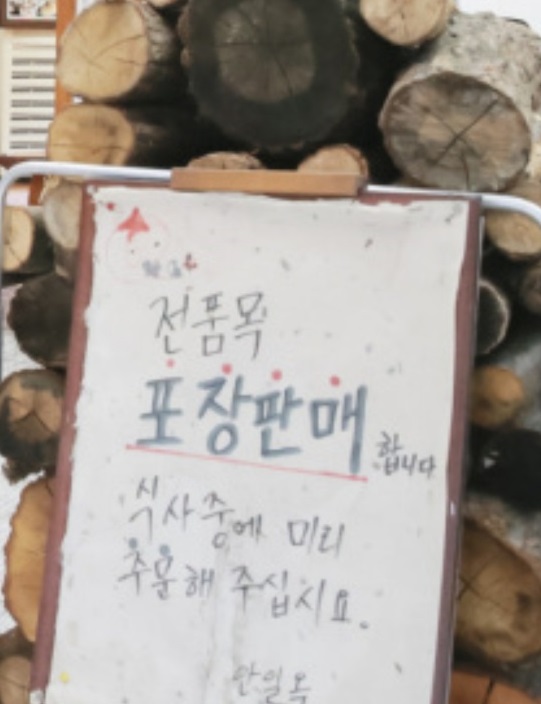 전품목
포장판매 합니다
식사중에 미리
주문해 주십시요.
안일옥